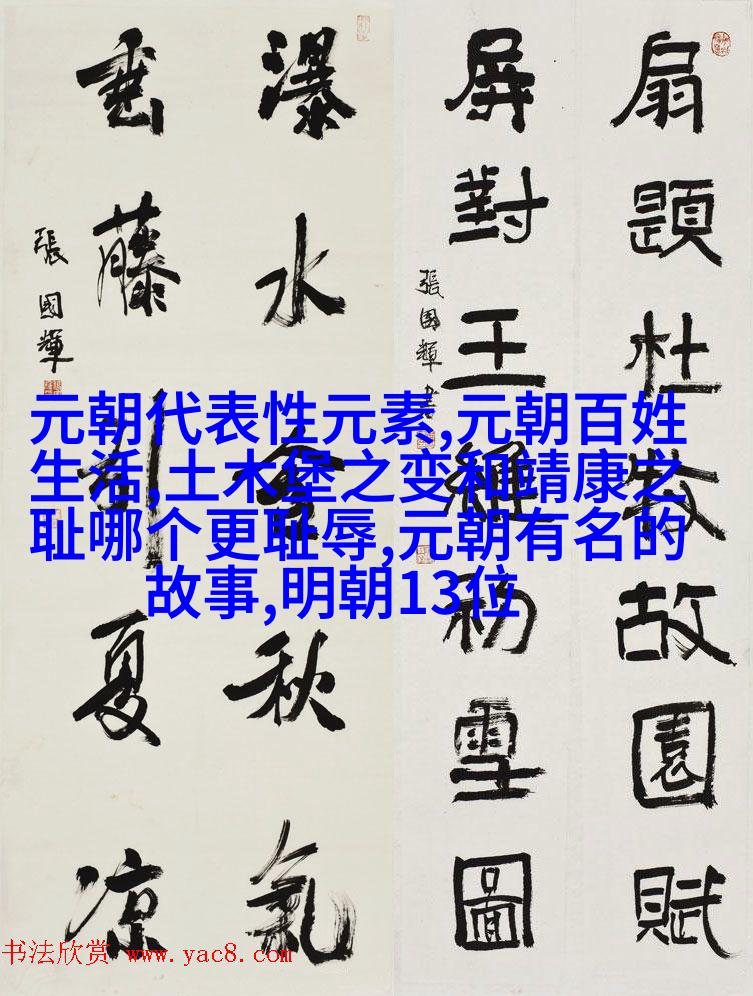 扇題杜牧故園賦
屏對王維初雪圖
張國輝書
瀑水含秋氣
垂藤引夏凉
張國輝
元朝代表性元素,元朝百姓
生活,土木堡之变和靖康之
耻哪个更耻辱,元朝有名的
故事,明朝13位
书法欣赏 www.yac8.com